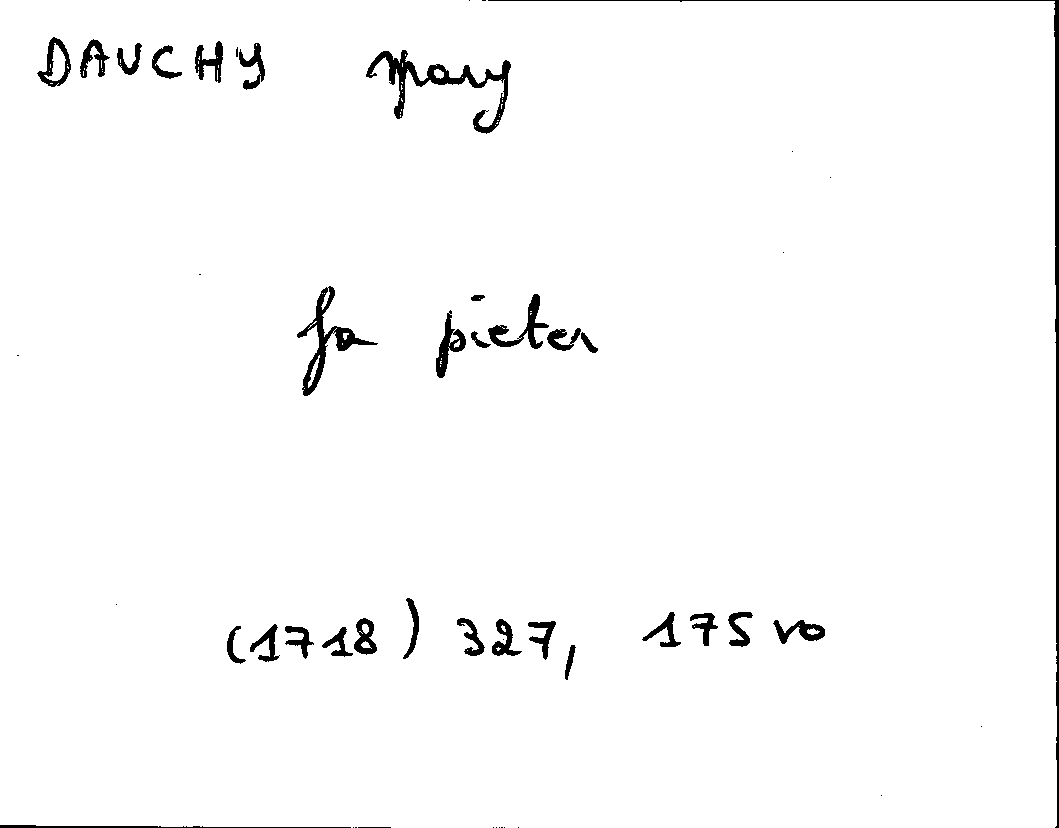 DAUCHY Mary
fa pieter
(1718) 327, 175 vo